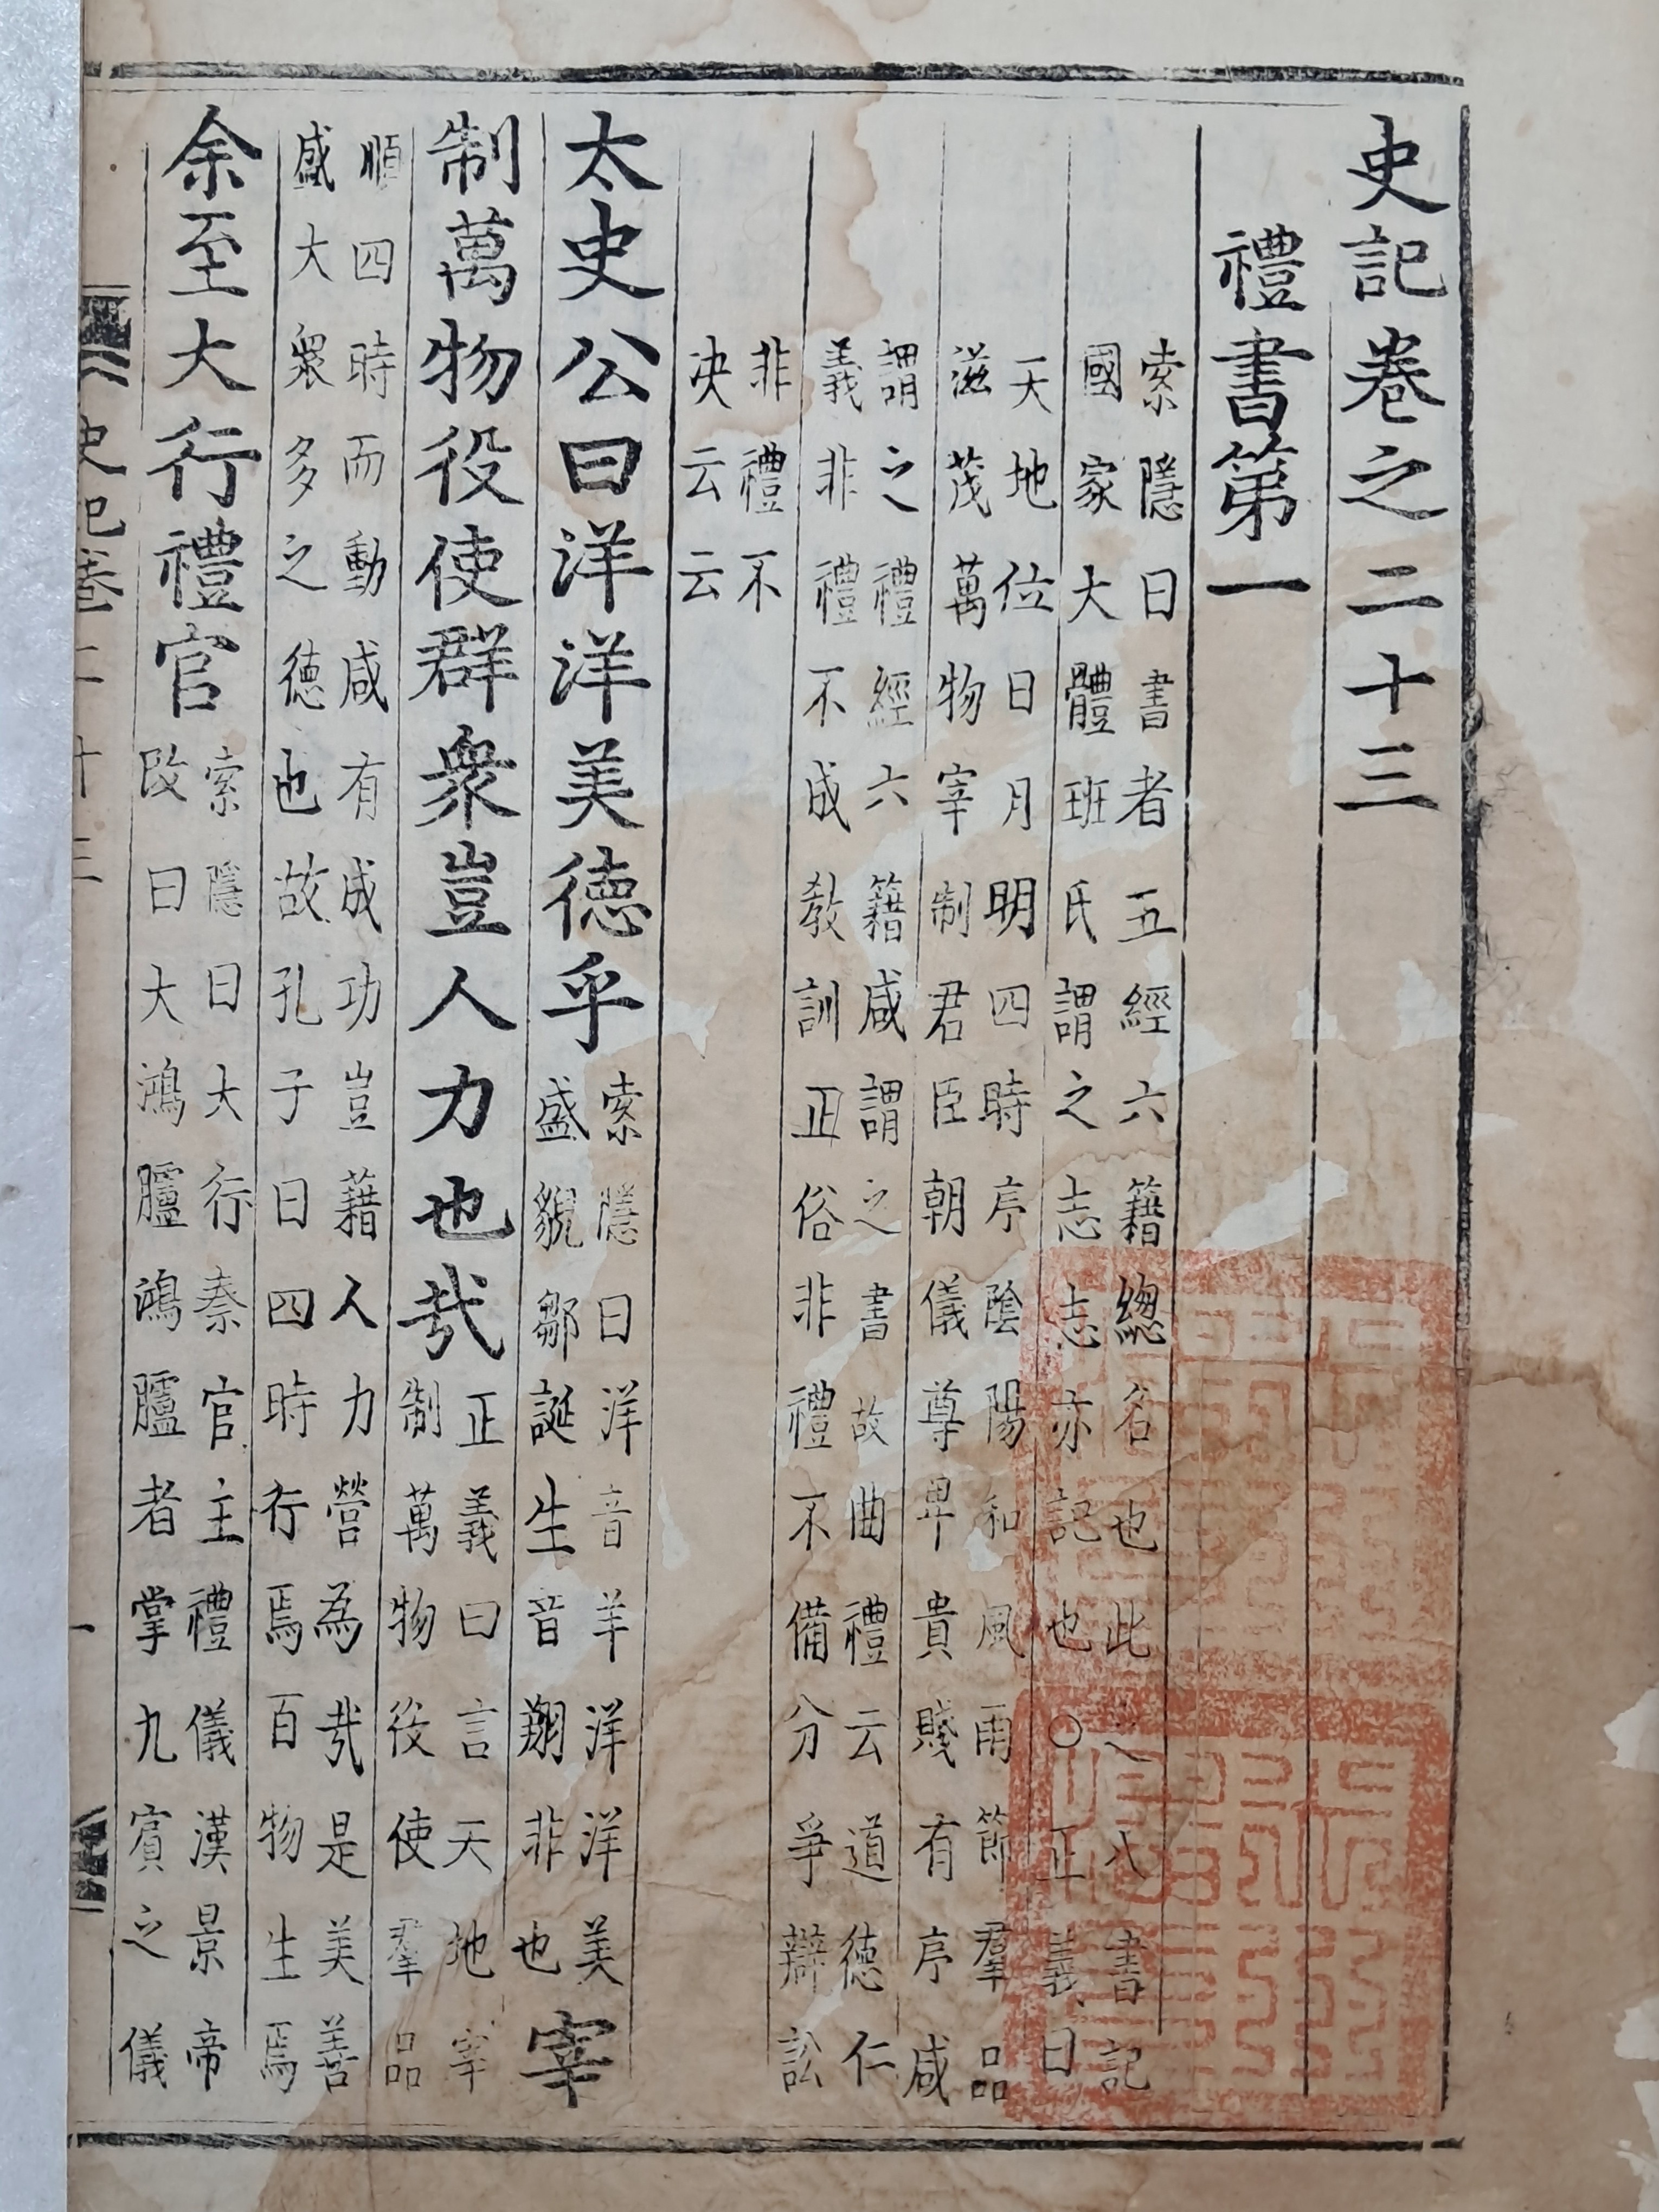 史記卷之二十三
禮書第一
索隱曰書者五經六籍總名也此之八書記
國家大體班氏謂之志志亦記也○正義曰
天地位日月明四時序陰陽和風雨節羣品
滋茂萬物宰制君臣朝儀尊卑貴賤有序咸
謂之禮經六籍咸謂之書故曲禮云道德仁
義非禮不成教訓正俗非禮不備分爭辯訟
非禮不
决云云
太史公曰洋洋美德乎
索隱曰洋音羊洋洋美
盛貌鄒誕生音翔非也
宰
制萬物役使群衆豈人力也㢤
正義曰言天地宰
制萬物役使羣品
順四時而動咸有成功豈藉人力營為㢤是美善
盛大衆多之德也故孔子曰四時行焉百物生焉
余至大行禮官
索隱曰大行秦官主禮儀漢景帝
改曰大鴻臚鴻臚者掌九賔之儀
史記卷二十三
一